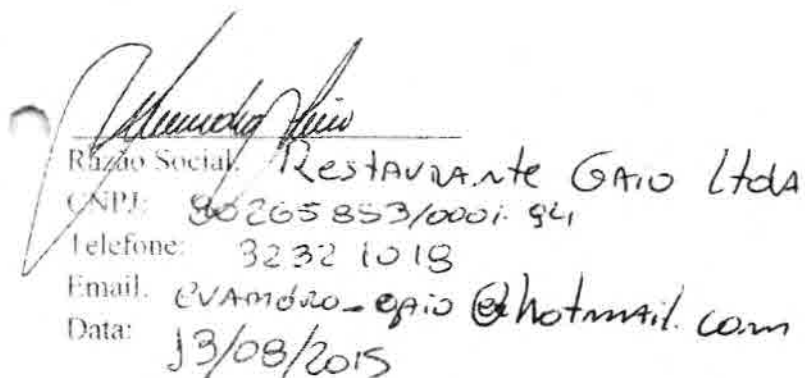 Razão Social: Restaurante Gaio Ltda
CNPJ: 90265853/0001-94
Telefone: 3232 1018
Email: evandro_gaio@hotmail.com
Data: 13/08/2015